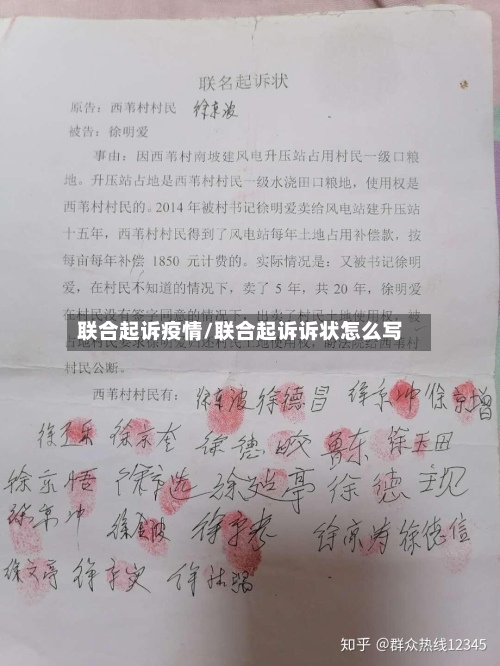 联名起诉状
原告：西苇村村民 徐京波
被告：徐明爱
事由：因西苇村南坡建风电升压站占用村民一级口粮
地。升压站占地是西苇村村民一级水浇田口粮地，使用权是
西苇村村民的。2014 年被村书记徐明爱卖给风电站建升压站
十五年，西苇村村民得到了风电站每年土地占用补偿款，按
每亩每年补偿 1850 元计费的。实际情况是：又被书记徐明
爱，在村民不知道的情况下，卖了 5 年，共 20 年，徐明爱
在村民没有签字同意的情况下，出卖了村民土地使用权。被
联合起诉疫情/联合起诉诉状怎么写
村民公断。
西苇村村民有：徐京波 徐德昌 徐京冲 徐京增
徐京奎 徐德 鲁东 徐玉田
徐京 徐 亭 徐德
徐京冲 徐 波 徐京 徐京涛 徐德信
徐文亭 徐京 徐
知乎 @群众热线12345